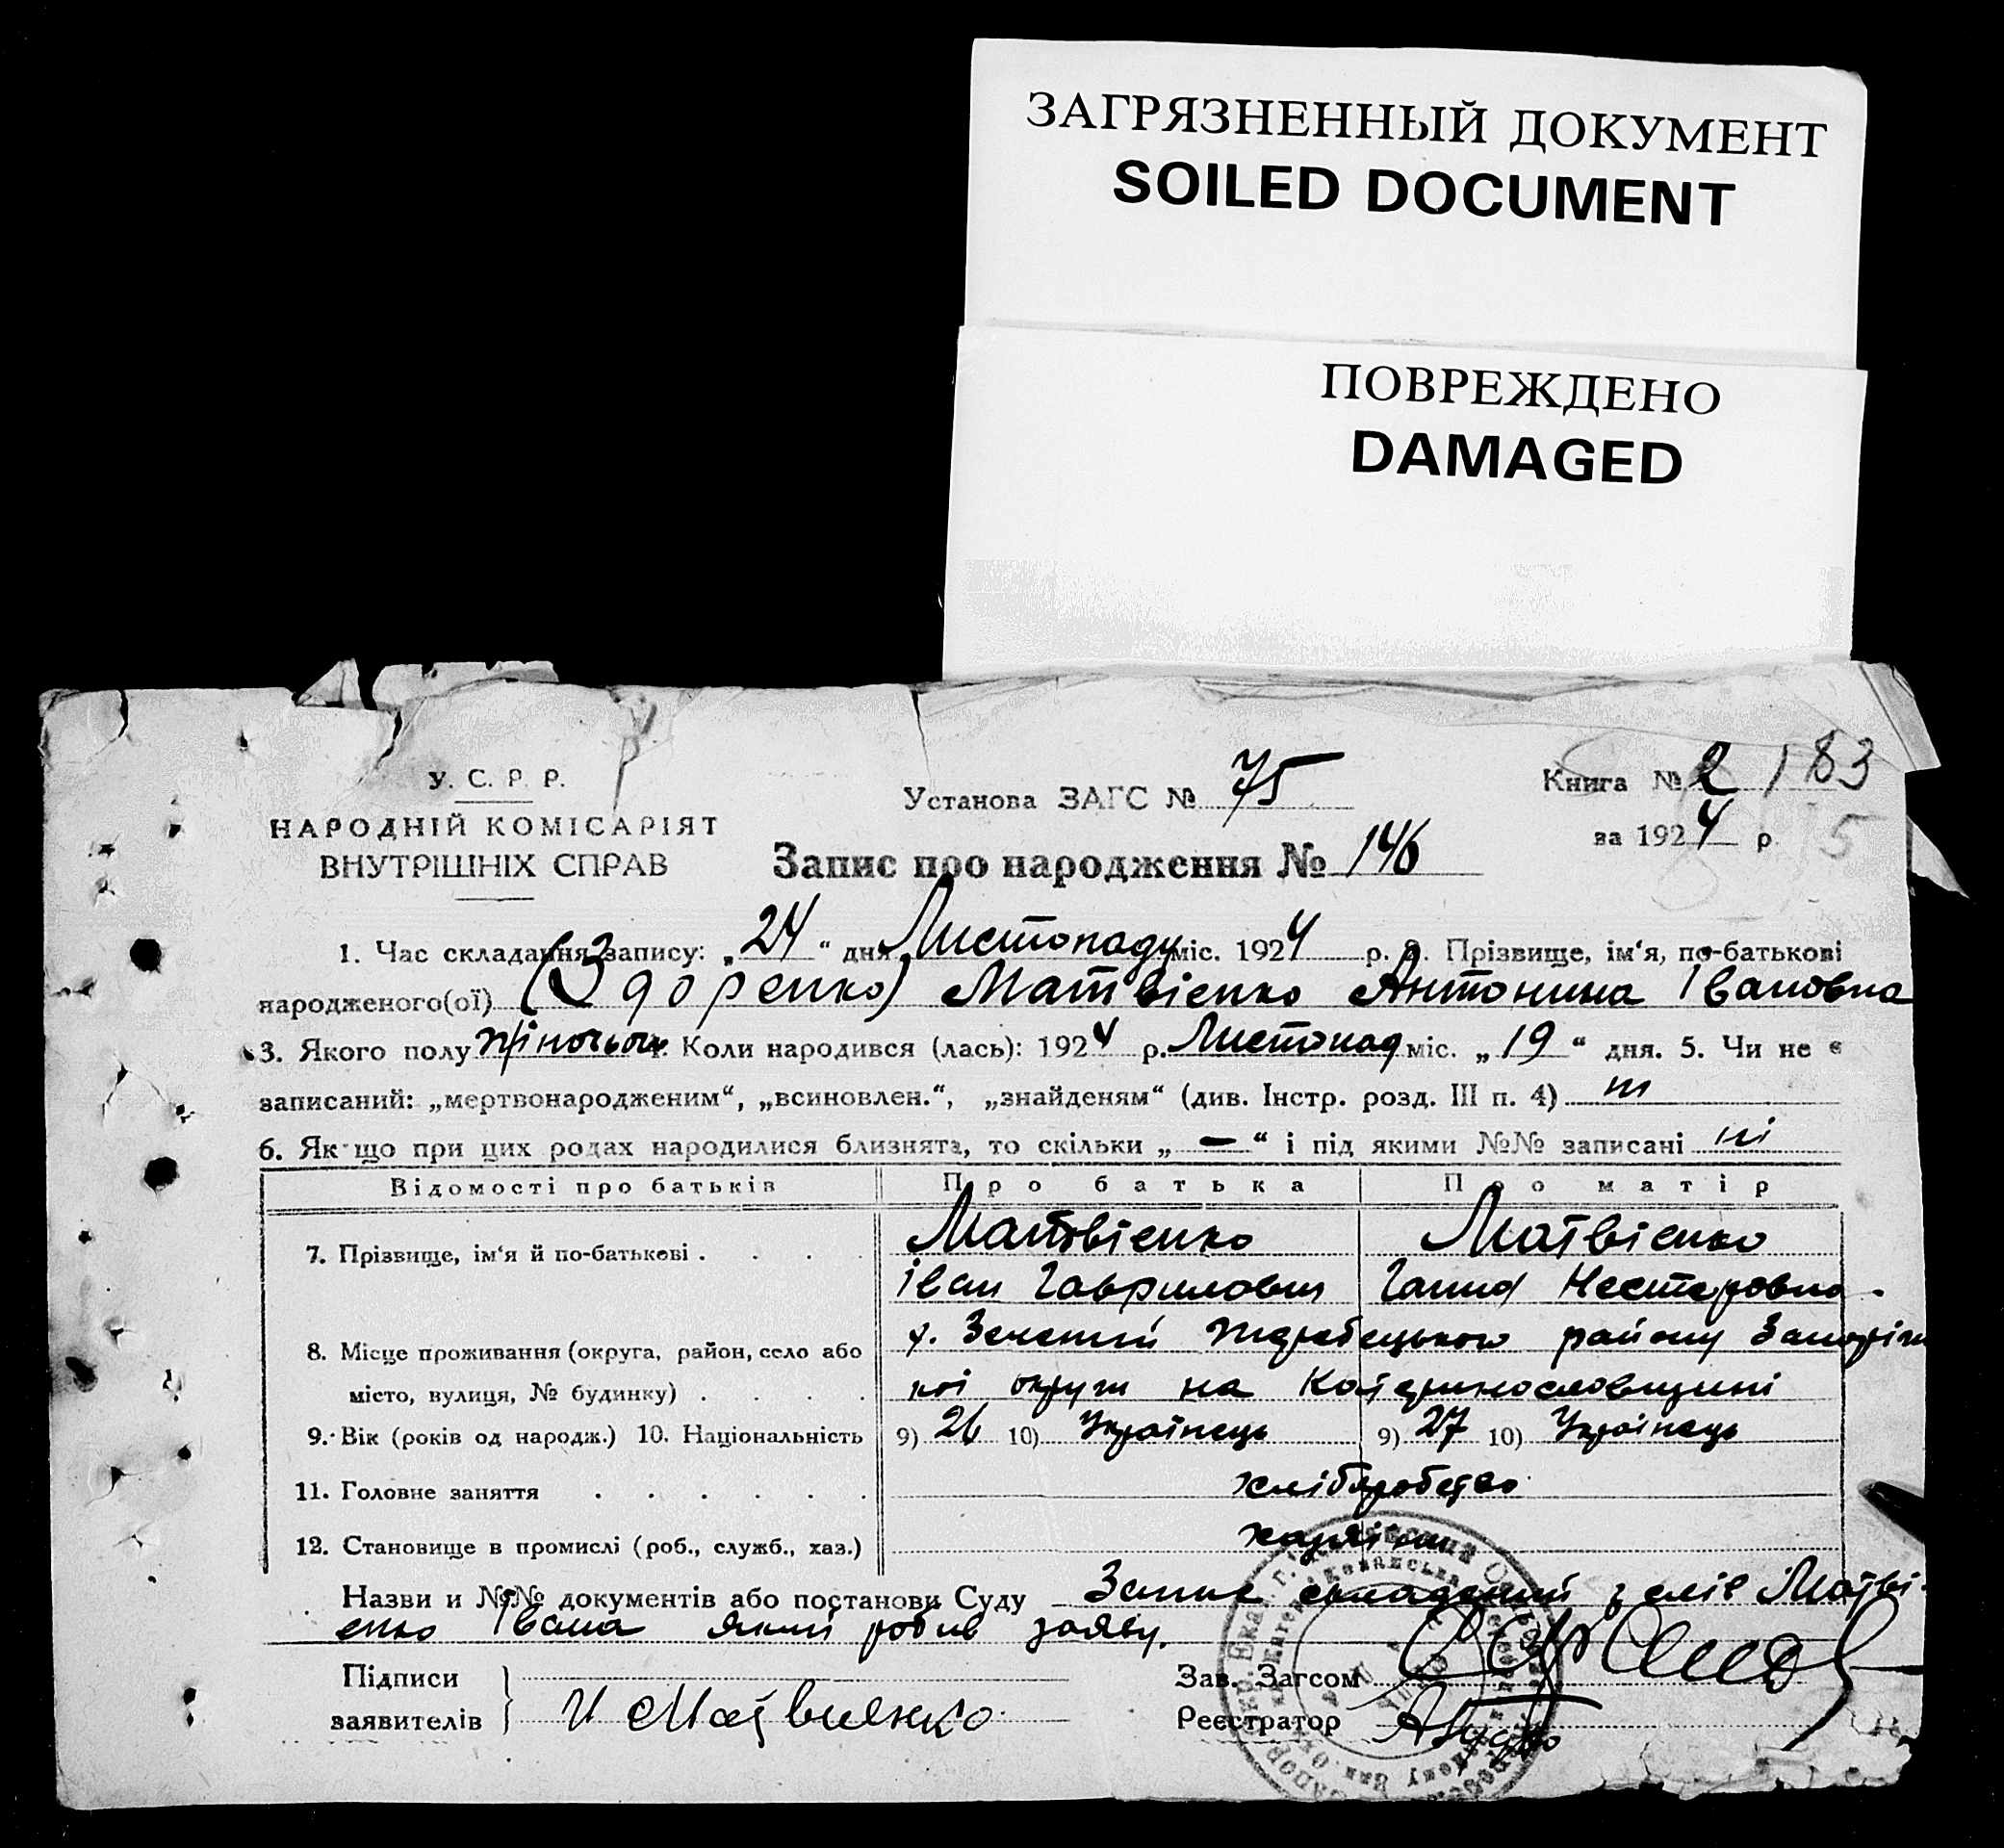 ЗАГРЯЗНЕННЫЙ ДОКУМЕНТ
SOILED DOCUMENT
ПОВРЕЖДЕНО
DAMAGED
У. С. Р. Р.
НАРОДНІЙ КОМІСАРІЯТ
ВНУТРІШНІХ СПРАВ
Установа ЗАГС № 75
Книга № 2 183
за 1924 р. 5
Запис про народження № 146
1. Час складання запису: „24“ дня Листопаду міс. 1924 р. 2. Прізвище, ім‘я, по-батькові
народженого(ої) (Здоренко) Матвієнко Антонина Івановна
3. Якого полу жіночого 4. Коли народився (лась): 1924 р. Листопад міс. „19“ дня. 5. Чи не є
записаний: „мертвонародженим“, „всиновлен.“, „знайденям“ (див. Інстр. розд. III п. 4) ні
6. Якщо при цих родах народилися близнята, то скільки „—“ і під якими №№ записані ні
Відомості про батьків Про батька Про матір
7. Прізвище, ім‘я й по-батькові . . . . Матвієнко Матвієнко
Іван Гаврилович Ганна Нестеровна
8. Місце проживання (округа, район, село або х. Зелений Жеребецького району Запоріж
місто, вулиця, № будинку) . . . . кої округи на Катеринославщині
9. Вік (років од народж.) 10. Національність 9) 26 10) Українець 9) 27 10) Українець
11. Головне заняття . . . . . . хліборобство
12. Становище в промислі (роб., служб., хаз.) хазяїни
Назви и №№ документів або постанови Суду Запис складений з слів Матві-
єнко Івана який робив заяву.
Підписи
заявителів И Матвиенко
Зав. Загсом
Реєстратор